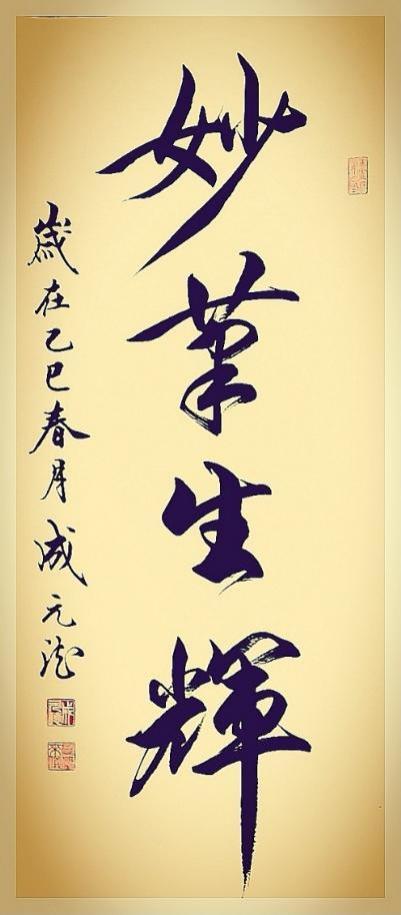 妙笔生輝
歲在乙巳春月成元